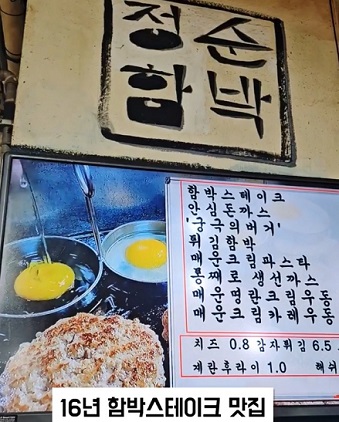 정순
함박
함박스테이크
안심돈까스
'궁극의버거'
튀김함박
매운크림파스타
통째로생선까스
매운명란크림우동
매운크림카레우동
치즈 0.8 감자튀김 6.5
계란후라이 1.0 해쉬
16년 함박스테이크 맛집